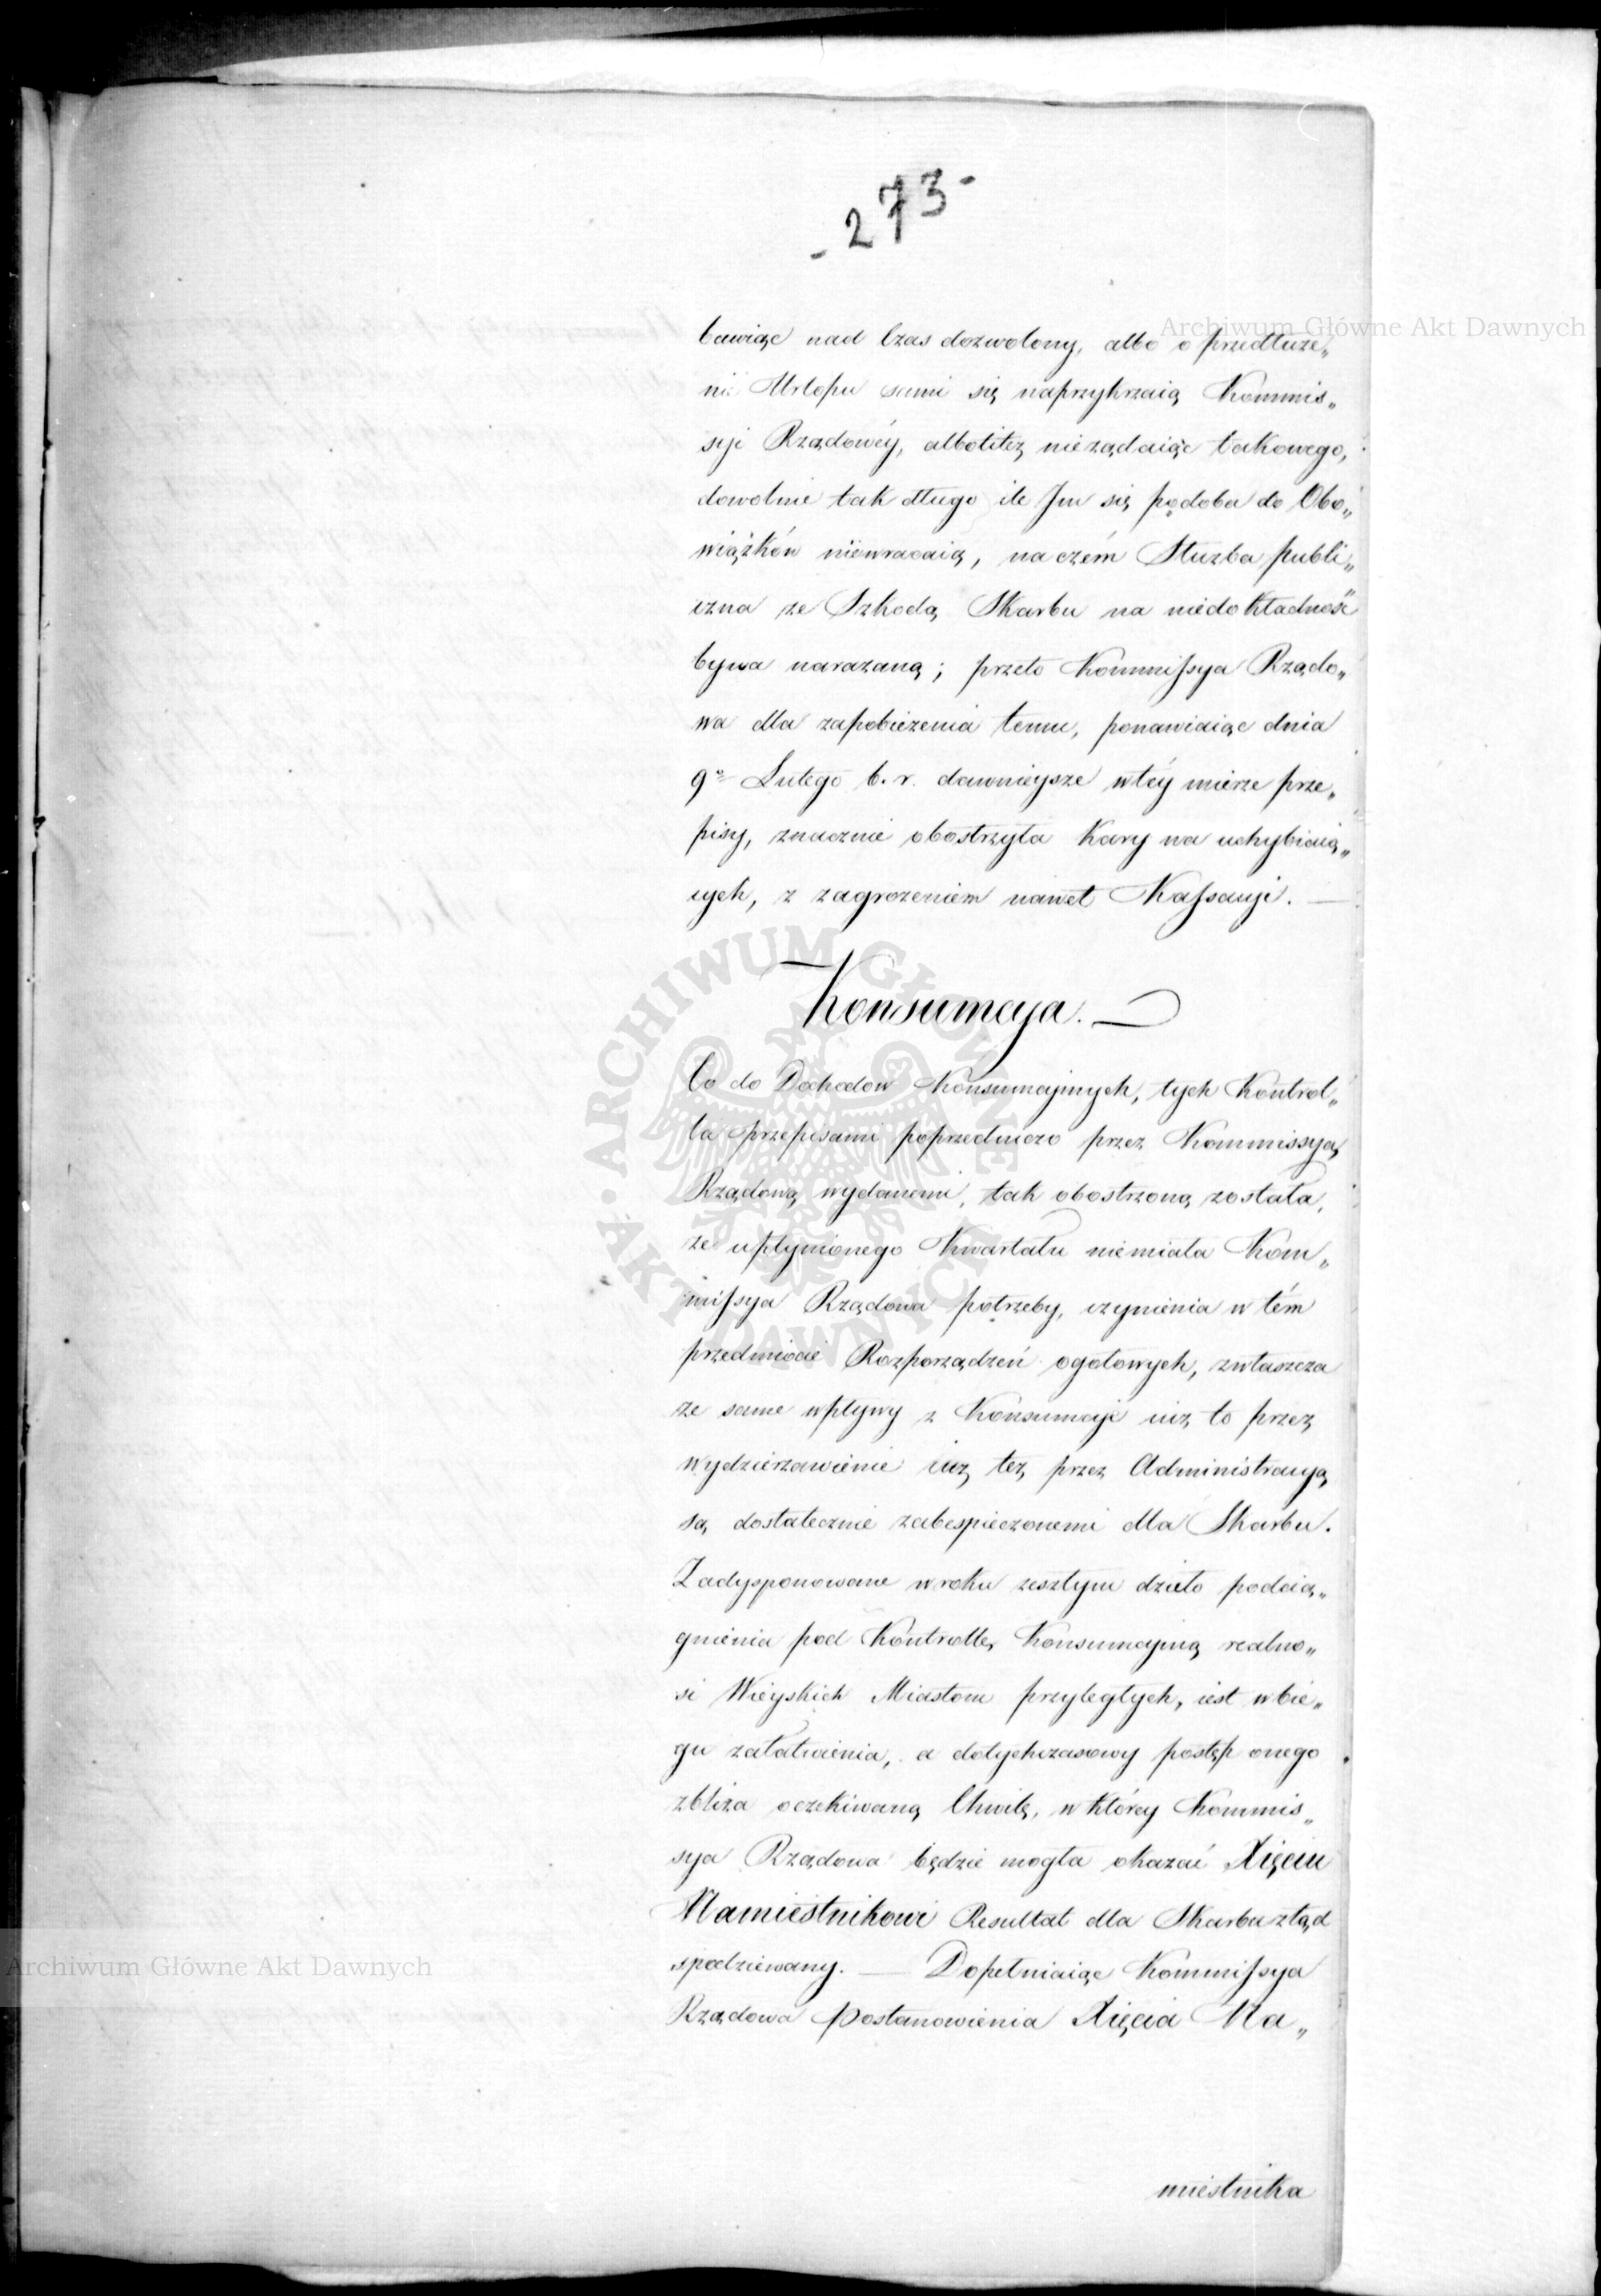 - 273 -
bawiąc nad Czas dozwolony, albo o przedłuże„
nie Urlopu sami się naprzykrzaią Kommis„
syi Rządowéy, albolitéż nieżądaiąc takowego,
dowolnie tak długo ile Jm się podoba do Obo„
wiązków niewracaią, na czém Służba publi„
czna ze Szkodą Skarbu na niedokładność
bywa narażaną; przeto Kommissya Rządo„
wa dla zapobieżenia temu, ponawiaiąc dnia
9º Lutego b. r. dawnieysze w téy mierze prze„
pisy, znacznie obostrzyła Kary na uchybiaią„
cych, z zagrożeniem nawet Kassacyi. —
Konsumcya. —
Co do Dochodów Konsumcyinych, tych Kontrol„
la przepisami poprzedniczo przez Kommissyą
Rządową wydanemi, tak obostrzoną została,
że upłynionego Kwartału niemiała Kom„
missya Rządowa potrzeby, czynienia w tém
przedmiocie Rozporządzeń ogółowych, zwłaszcza
że same wpływy z Konsumcyi iuż to przez
wydzierżawienie iuż też przez Administracyą
są dostatecznie zabespieczonemi dla Skarbu.
Zadysponowane w roku zeszłym dzieło podcią„
gnienia pod Kontrollę Konsumcyiną realno„
ści Wieyskich Miastom przyległych, iest w bie„
gu załatwienia, a dotychczasowy postęp onego
zbliża oczekiwaną Chwilę, w któréy Kommis„
sya Rządowa będzie mogła okazać Xięciu
Namiestnikowi Resultat dla Skarbu ztąd
spodziewany. — Dopełniaiąc Kommissya
Rządowa Postanowienia Xięcia Na„
miestnika
Archiwum Główne Akt Dawnych
ARCHIWUM GŁÓWNE AKT DAWNYCH
Archiwum Główne Akt Dawnych